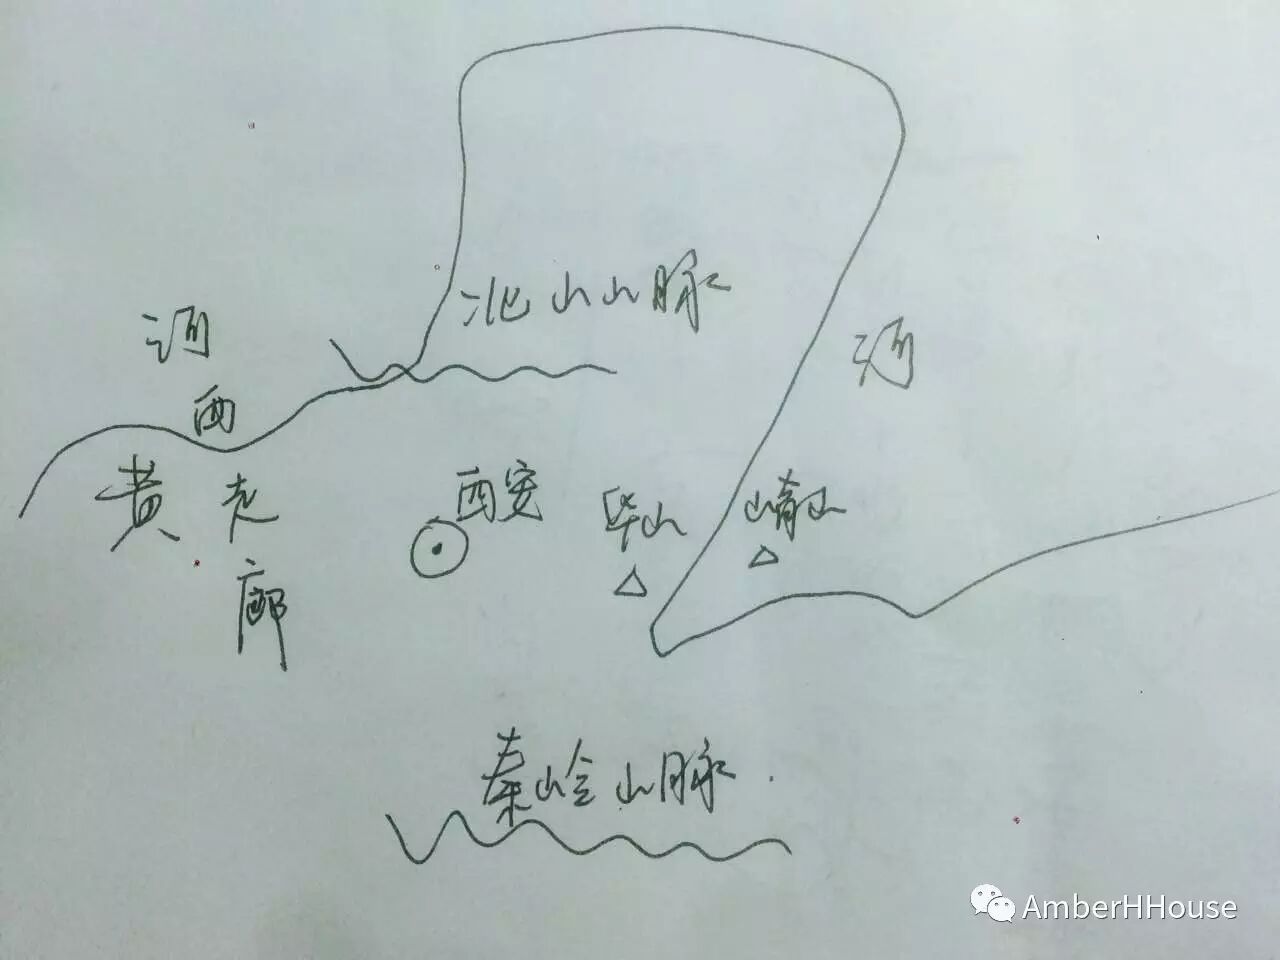 北山山脉
河
西
走
廊
河
黄
西安
华山
崤山
秦岭山脉
AmberHHouse